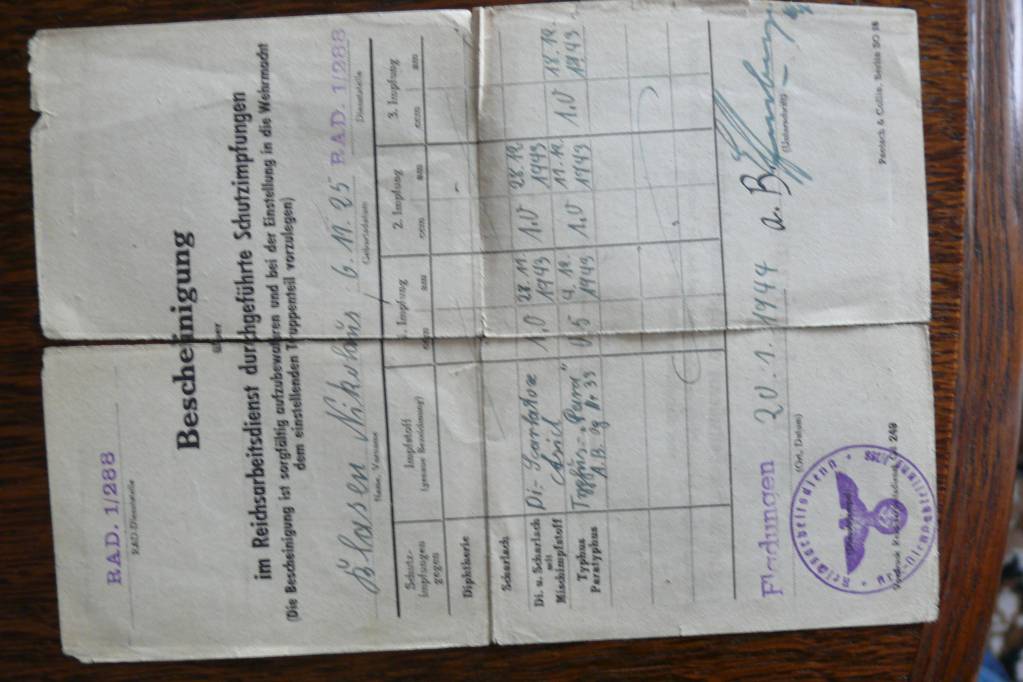 RAD. 1/288
RAD-Dienststelle
Bescheinigung
über
im Reichsarbeitsdienst durchgeführte Schutzimpfungen
(Die Bescheinigung ist sorgfältig aufzubewahren und bei der Einstellung in die Wehrmacht
dem einstellenden Truppenteil vorzulegen)
Blasen Nikolaus, 6.11.25 RAD. 1/288
Name, Vorname Geburtsdatum Dienststelle
Schutz-
impfungen
gegen
Impfstoff
(genaue Bezeichnung)
1. Impfung
ccm am
2. Impfung
ccm am
3. Impfung
ccm am
Diphtherie
Scharlach
Di. u. Scharlach
mit
Mischimpfstoff
Di.- Scarlatox
1,0 28.11. 1943
1,0 28.12. 1943
Typhus
Paratyphus
Typhus-
A.B. Og Nr 33
0,5 4.12. 1943
1,0 11.12. 1943
1,0 18.12. 1943
Fladungen 20.1.1944
(Ort, Datum) (Unterschrift)
Reichsarbeitsdienst
249
Pentsch & Collin, Berlin SO 16